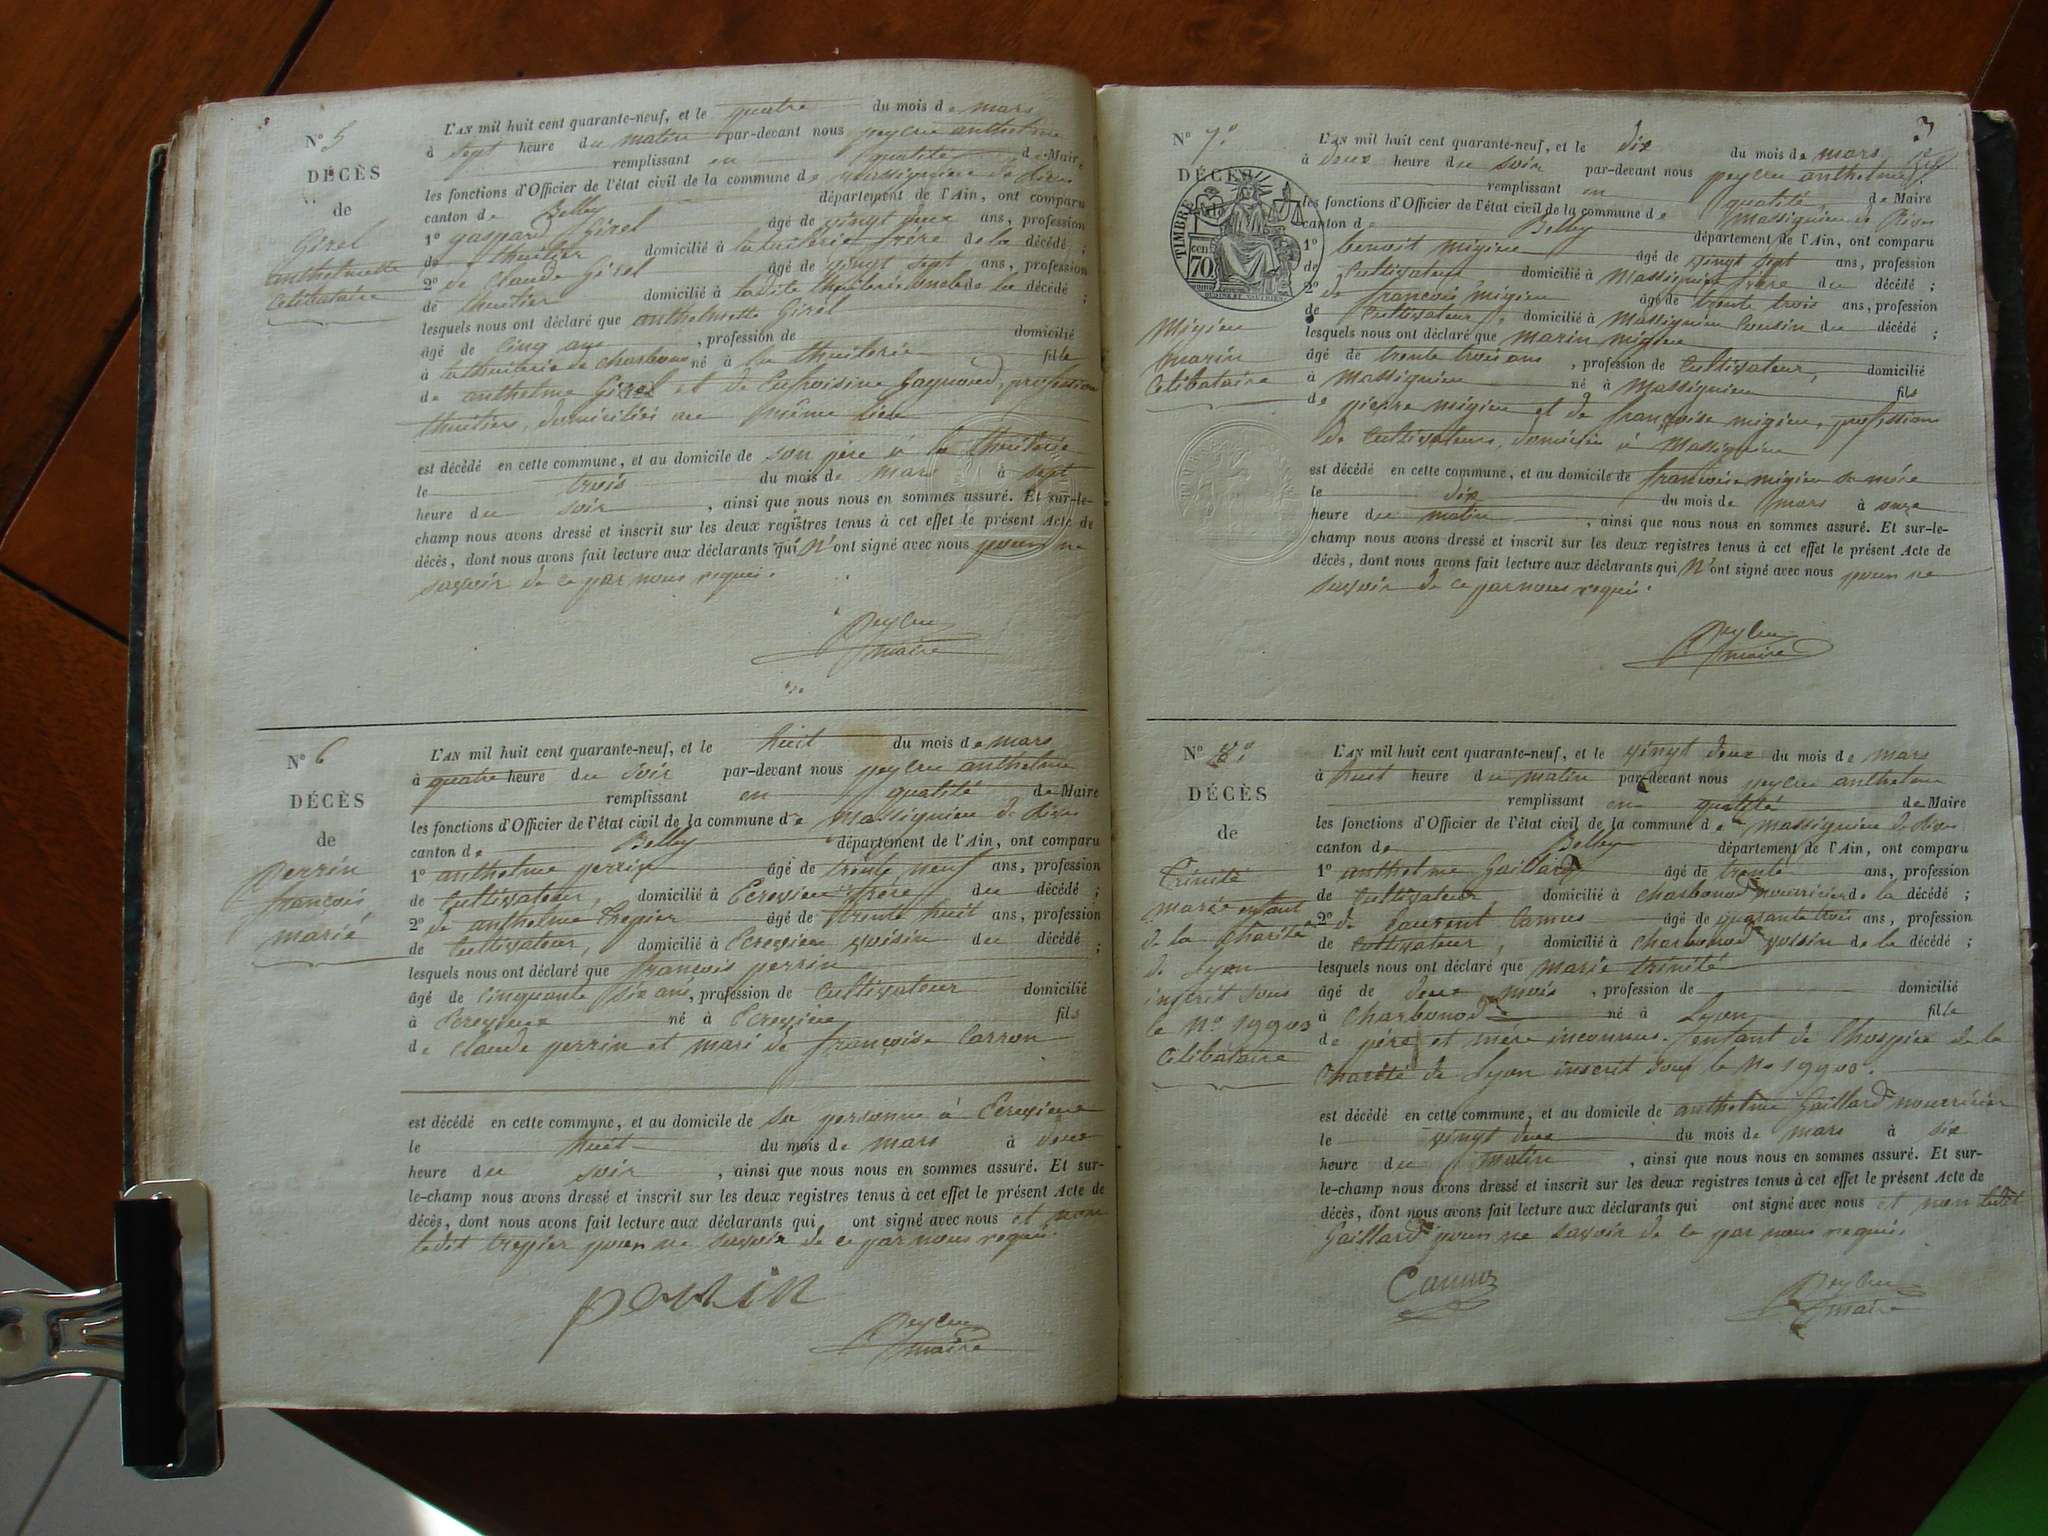 N° 5
DÉCÈS
de
Girel
anthelmette
Célibataire
L'AN mil huit cent quarante-neuf, et le quatre du mois de mars
à sept heure du matin par-devant nous peylru anthelme
remplissant en qualité de Maire
les fonctions d'Officier de l'état civil de la commune de massignieu de Rives
canton de Belley département de l'Ain, ont comparu
1° gaspard Girel âgé de vingt deux ans, profession
de thuilier domicilié à la tuilerie frère de la décédé ;
2° de Claude Girel âgé de vingt sept ans, profession
de thuilier domicilié à ladite thuilerie oncle de la décédé ;
lesquels nous ont déclaré que anthelmette Girel
âgé de cinq ans , profession de domicilié
à la thuilerie de charbonod né à la thuilerie fille
de anthelme Girel et de Eufroisine Gaymond, profession
thuiliers, domiciliés au même lieu
est décédé en cette commune, et au domicile de son père à la thuilerie
le trois du mois de mars à sept
heure du soir , ainsi que nous nous en sommes assuré. Et sur-le-
champ nous avons dressé et inscrit sur les deux registres tenus à cet effet le présent Acte de
décès, dont nous avons fait lecture aux déclarants qui n'ont signé avec nous pour ne
savoir de ce par nous requis.
Peylru
maire
N° 6
DÉCÈS
de
Perrin
françois
marié
L'AN mil huit cent quarante-neuf, et le huit du mois de mars
à quatre heure du soir par-devant nous peylru anthelme
remplissant en qualité de Maire
les fonctions d'Officier de l'état civil de la commune de massignieu de Rives
canton de Belley département de l'Ain, ont comparu
1° anthelme perrin âgé de trente neuf ans, profession
de Cultivateur, domicilié à Ecrevieu frère du décédé ;
2° de anthelme trepier âgé de trente huit ans, profession
de Cultivateur, domicilié à Ecrevieu voisin du décédé ;
lesquels nous ont déclaré que françois perrin
âgé de cinquante six ans, profession de Cultivateur domicilié
à Ecrevieu né à Ecrevieu fils
de Claude perrin et mari de françoise Carron
est décédé en cette commune, et au domicile de sa personne à Ecrevieu
le huit du mois de mars à deux
heure du soir , ainsi que nous nous en sommes assuré. Et sur-
le-champ nous avons dressé et inscrit sur les deux registres tenus à cet effet le présent Acte de
décès, dont nous avons fait lecture aux déclarants qui ont signé avec nous et non
ledit trepier pour ne savoir de ce par nous requis.
perrin
Peylru
maire
3
N° 7°
DÉCÈS
TIMBRE
70
Migieu
marin
Célibataire
L'AN mil huit cent quarante-neuf, et le dix du mois de mars
à deux heure du soir par-devant nous peylru anthelme
remplissant en qualité de Maire
les fonctions d'Officier de l'état civil de la commune de massignieu de Rives
canton de Belley département de l'Ain, ont comparu
1° benoit migieu âgé de vingt sept ans, profession
de Cultivateur domicilié à Massignieu frère du décédé ;
2° de françois migieu âgé de trente trois ans, profession
de Cultivateur, domicilié à massignieu Cousin du décédé ;
lesquels nous ont déclaré que marin migieu
âgé de trente trois ans , profession de Cultivateur, domicilié
à Massignieu né à Massignieu fils
de pierre migieu et de françoise migieu, profession
de Cultivateurs, domicilié à Massignieu
est décédé en cette commune, et au domicile de françoise migieu sa mère
le dix du mois de mars à onze
heure du matin , ainsi que nous nous en sommes assuré. Et sur-le-
champ nous avons dressé et inscrit sur les deux registres tenus à cet effet le présent Acte de
décès, dont nous avons fait lecture aux déclarants qui n'ont signé avec nous pour ne
savoir de ce par nous requis.
Peylru
maire
N° 8°
DÉCÈS
de
Trinité
marie enfant
de la Charité
de Lyon
inscrit sous
le N° 19900
Célibataire
L'AN mil huit cent quarante-neuf, et le vingt deux du mois de mars
à huit heure du matin par-devant nous peylru anthelme
remplissant en qualité de Maire
les fonctions d'Officier de l'état civil de la commune de massignieu de Rives
canton de Belley département de l'Ain, ont comparu
1° anthelme Gaillard âgé de trente ans, profession
de Cultivateur domicilié à Charbonod nourricier de la décédé ;
2° de Laurent Camus âgé de quarante trois ans, profession
de Cultivateur, domicilié à Charbonod voisin de la décédé ;
lesquels nous ont déclaré que marie trinité
âgé de deux mois , profession de domicilié
à Charbonod né à Lyon fille
de père et mère inconnus. enfant de l'hospice de la
Charité de Lyon inscrit sous le N° 19900.
est décédé en cette commune, et au domicile de anthelme Gaillard nourricier
le vingt deux du mois de mars à six
heure du matin , ainsi que nous nous en sommes assuré. Et sur-
le-champ nous avons dressé et inscrit sur les deux registres tenus à cet effet le présent Acte de
décès, dont nous avons fait lecture aux déclarants qui ont signé avec nous et non ledit
Gaillard pour ne savoir de ce par nous requis.
Camus
Peylru
maire